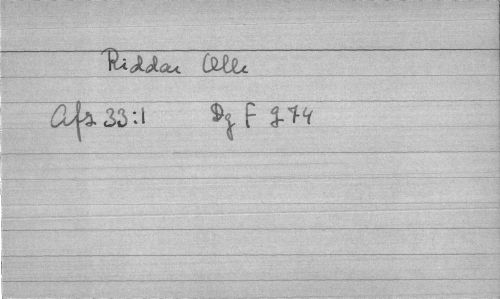 Riddar Olle
Afz 33:1 Dg F 974